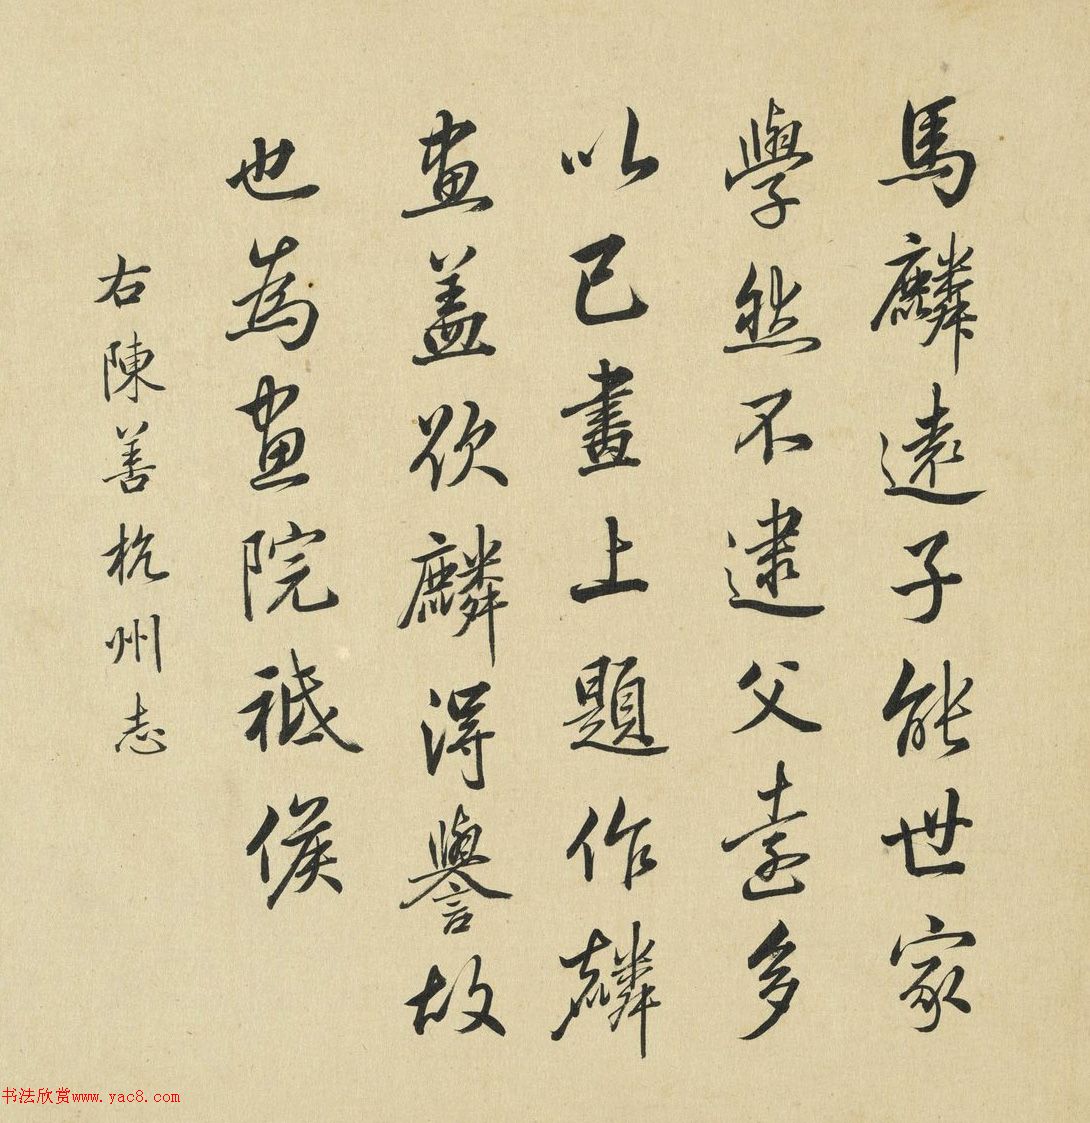 馬麟遠子能世家
學然不逮父遠多
以已畫上題作麟
畫盖欲麟得譽故
也為畫院祗候
右陳善杭州志
书法欣赏www.yac8.com